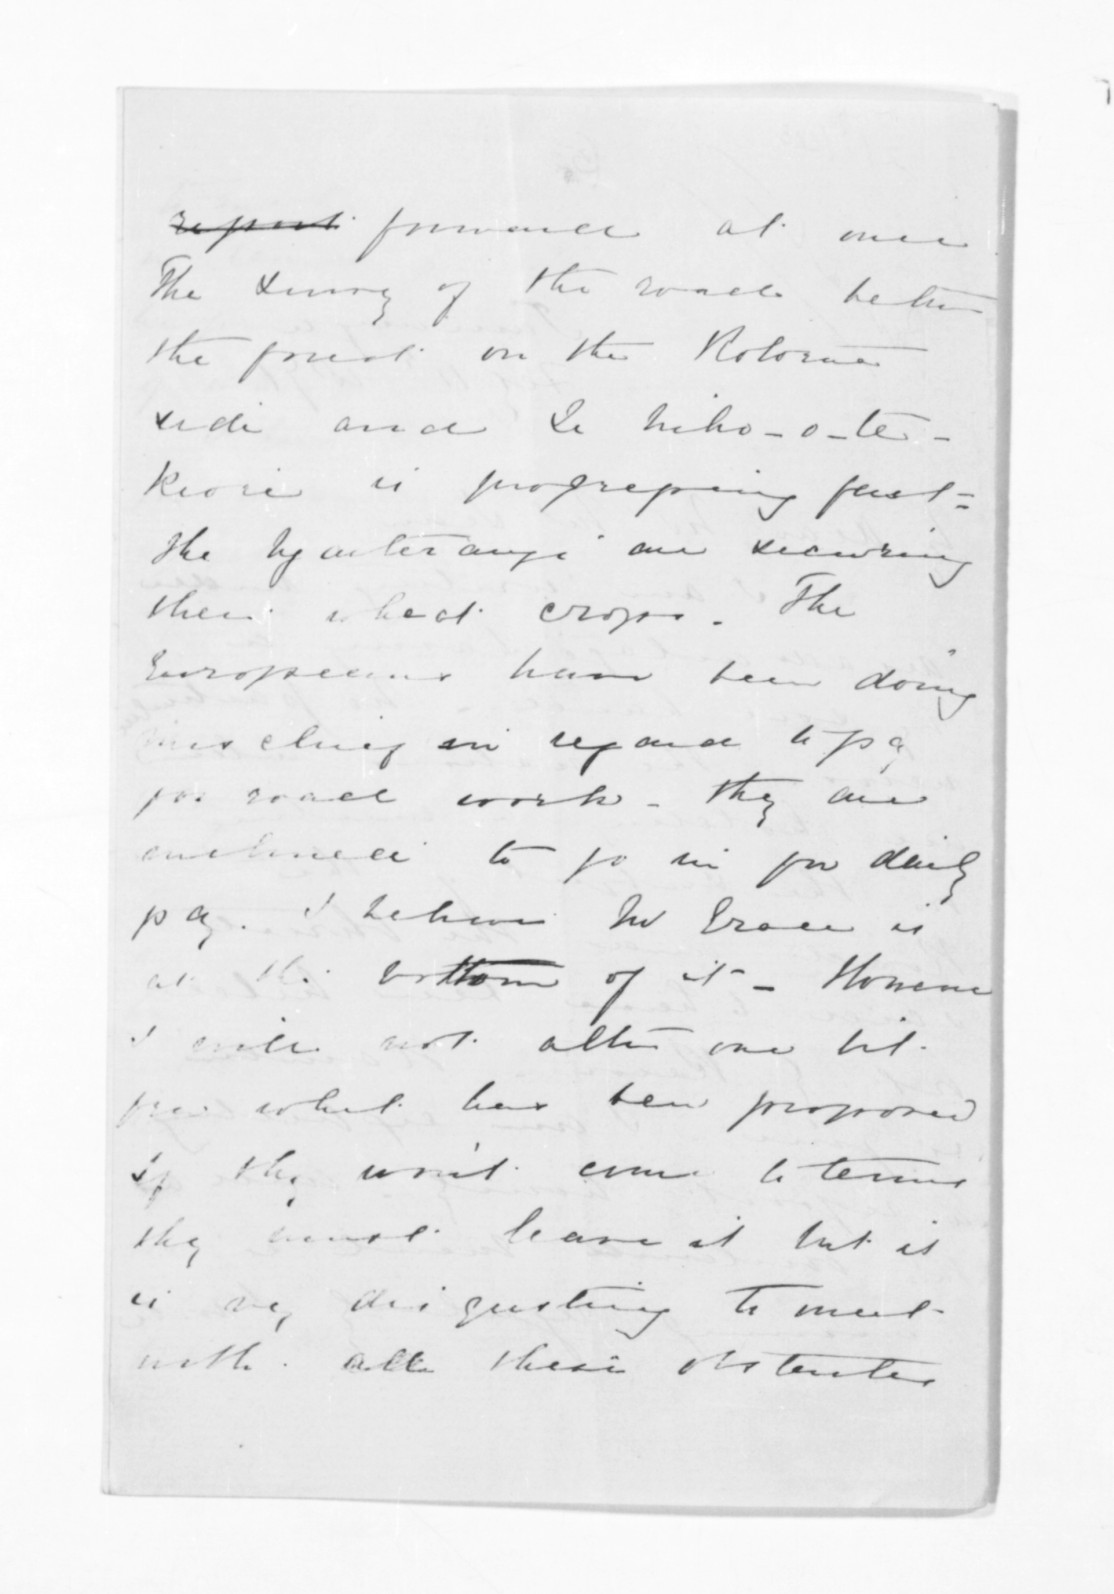 report forward at once
The Survey of the road betwn
the forest on the Rotorua
side and Te Niho-o-te-
Kiore is progressing fast=
the Ngaiterangi are securing
their wheat crops. The
Europeans have been doing
mischief in regard to pay
for road work - they are
inclined to go in for daily
pay. I believe Mr Grace is
at the bottom of it - However
I will not alter one bit
from what has been proposed
If they won't come to terms
they must leave it but it
is very disgusting to meet
with all these obstacles